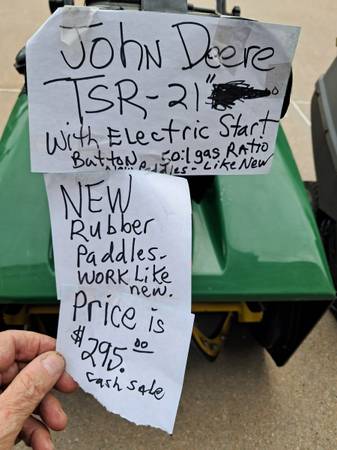 John Deere
TSR-21"
With Electric Start
Button 50:1 gas Ratio
New Paddles - Like New
NEW
Rubber
Paddles-
WORK Like
new.
Price is
$295.00
cash sale